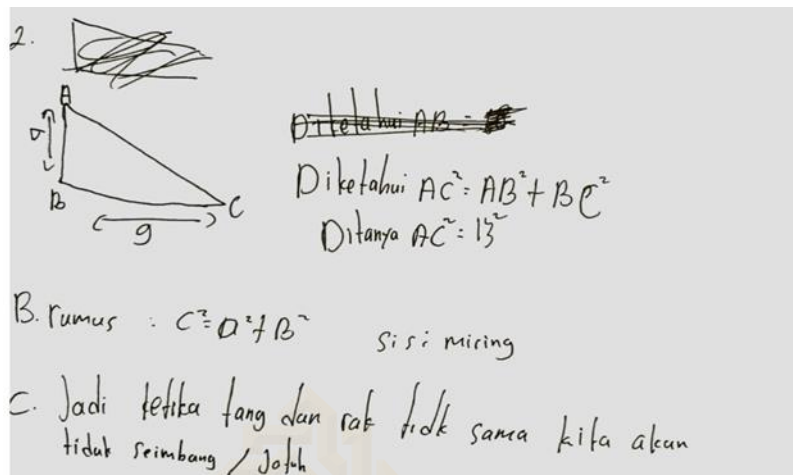 2.
A
9
B
C
9
Diketahui AB =
Diketahui AC² = AB² + BC²
Ditanya AC² = 13²
B. rumus : C² = a² + B²
sisi miring
C. Jadi ketika tang dan rak tidk sama kita akan
tidak seimbang / Jatuh